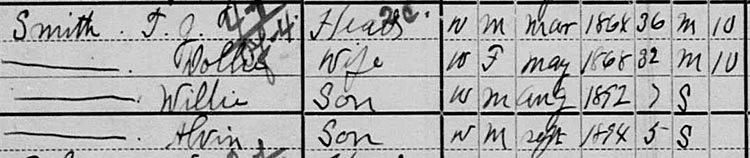 Smith . T. J. Head W M Mar 1864 36 M 10
——— . Dollie Wife W F May 1868 32 M 10
——— . Willie Son W M Aug 1892 7 S
——— . Alvin Son W M Sept 1894 5 S